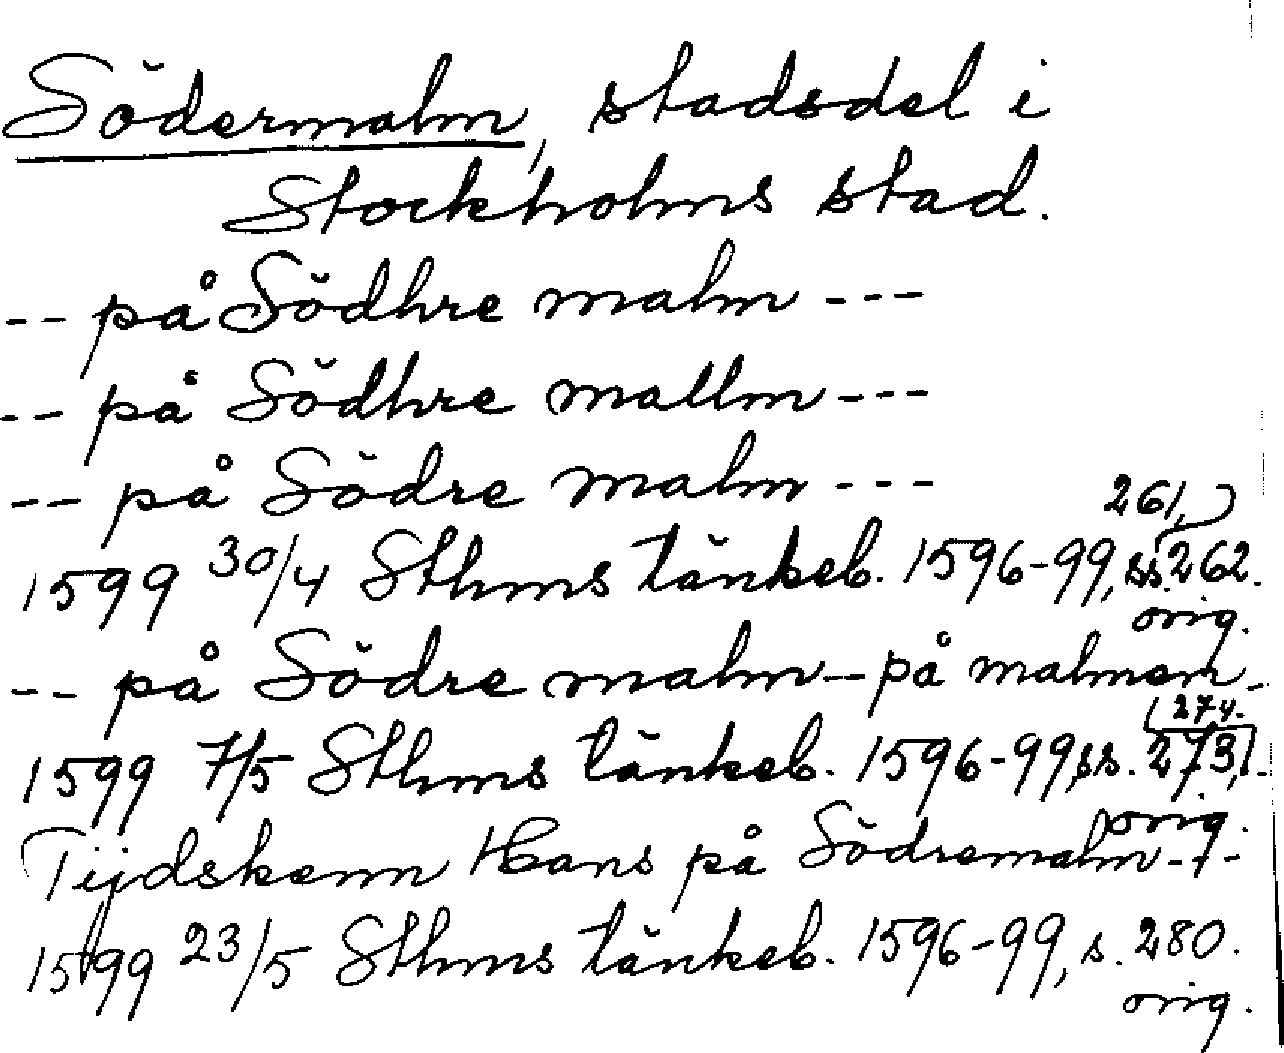 Södermalm, stadsdel i
Stockholms stad.
-- på Södhre malm ---
-- på Södhre mallm ---
-- på Södre malm ---
261,
1599 30/4 Sthms tänkeb. 1596-99, ss. 262.
orig.
-- på Södre malm -- på malmem -
274.
1599 7/5 Sthms tänkeb. 1596-99, ss. 273,
orig.
Tijdskenn Hans på Södremalm ---
1599 23/5 Sthms tänkeb. 1596-99, s. 280.
orig.